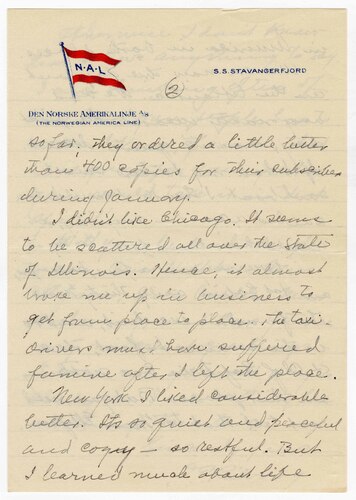 N-A-L
S.S. STAVANGERFJORD
(2)
DEN NORSKE AMERIKALINJE A/S
(THE NORWEGIAN AMERICA LINE)
so far, they ordered a little better
than 400 copies for their subscribers
during January.
I didn't like Chicago. It seems
to be scattered all over the State
of Illinois. Hence, it almost
broke me up in business to
get from place to place. The taxi-
drivers must have suffered
famine after I left the place.
New York I liked considerable
better. It's so quiet and peaceful
and cozy — so restful. But
I learned much about life